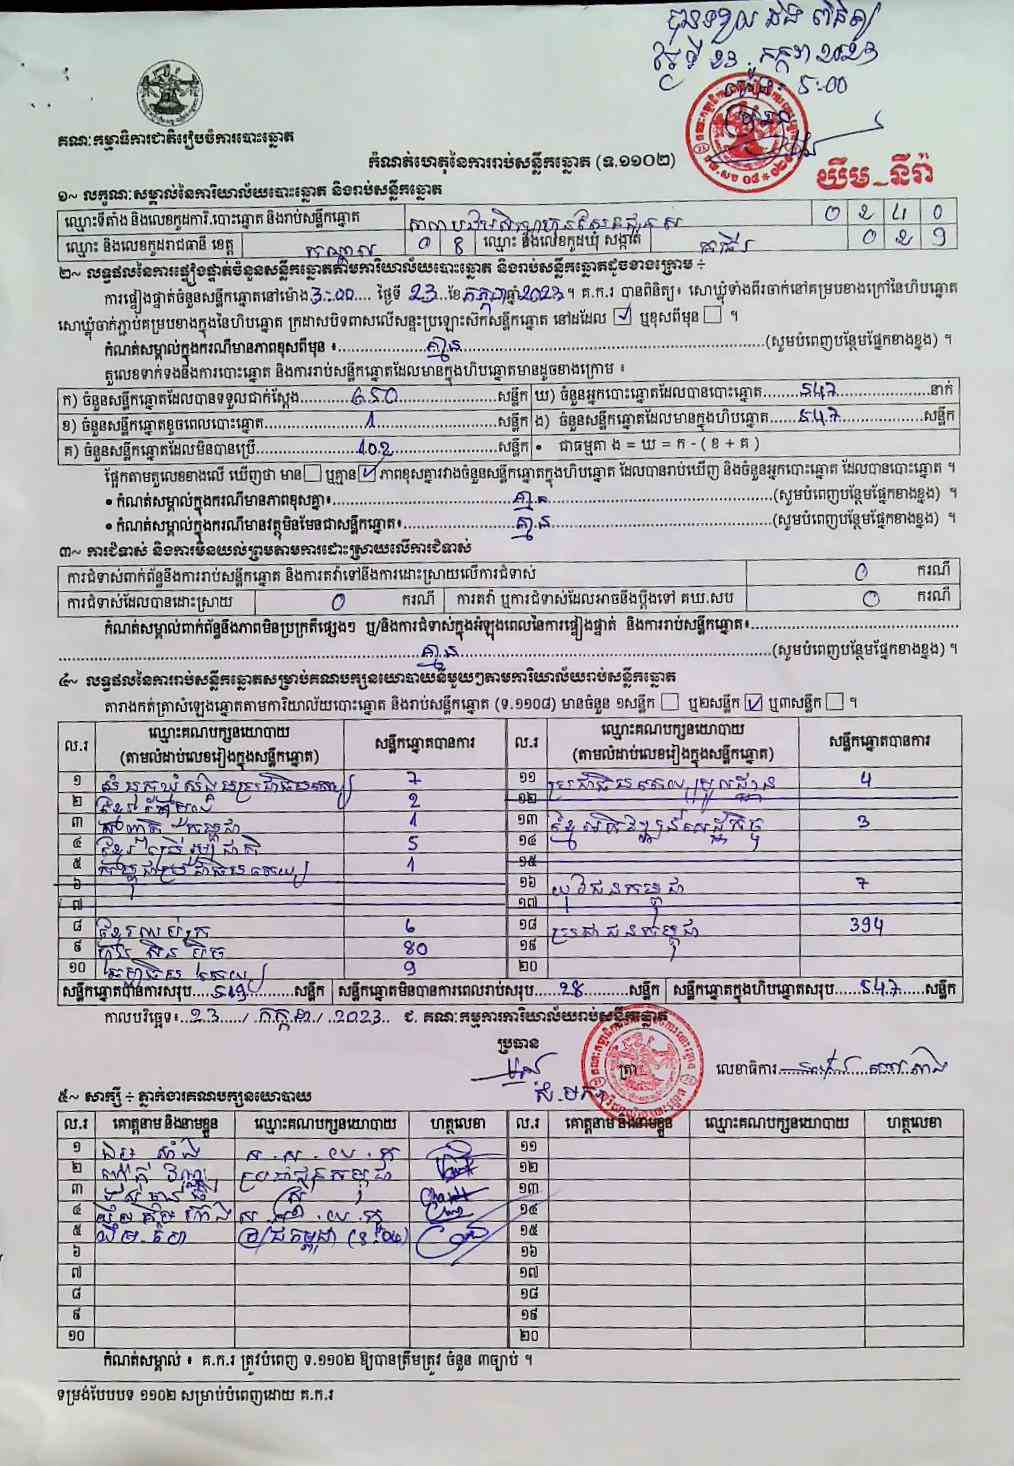 ថ្ងៃទី ២៣ កក្កដា ២០២៣
ម៉ោង: ៥:០០
គណៈកម្មាធិការជាតិរៀបចំការបោះឆ្នោត
កំណត់ហេតុនៃការរាប់សន្លឹកឆ្នោត (ទ.១១០២)
យឹម_នីរ៉ា
១~ លក្ខណៈសម្គាល់នៃការិយាល័យបោះឆ្នោត និងរាប់សន្លឹកឆ្នោត
ឈ្មោះទីតាំង និងលេខកូដការិ.បោះឆ្នោត និងរាប់សន្លឹកឆ្នោត 0 2 4 0
ឈ្មោះ និងលេខកូដរាជធានី ខេត្ត កណ្តាល 0 8 ឈ្មោះ និងលេខកូដឃុំ សង្កាត់ 0 2 9
២~ លទ្ធផលនៃការផ្ទៀងផ្ទាត់ចំនួនសន្លឹកឆ្នោតតាមការិយាល័យបោះឆ្នោត និងរាប់សន្លឹកឆ្នោតដូចខាងក្រោម ÷
ការផ្ទៀងផ្ទាត់ចំនួនសន្លឹកឆ្នោតនៅម៉ោង 3:00 ថ្ងៃទី 23 ខែ កក្កដា ឆ្នាំ 2023 ។ គ.ក.រ បានពិនិត្យ៖ សោឃ្លុំទាំងពីរចាក់នៅគម្របខាងក្រៅនៃហិបឆ្នោត
សោឃ្លុំចាក់ភ្ជាប់គម្របខាងក្នុងនៃហិបឆ្នោត ក្រដាសបិទពាសលើសន្ទះប្រឡោះស៊កសន្លឹកឆ្នោត នៅដដែល ☑ ឬខុសពីមុន ☐ ។
កំណត់សម្គាល់ក្នុងករណីមានភាពខុសពីមុន ៖ គ្មាន (សូមបំពេញបន្ថែមផ្នែកខាងខ្នង) ។
តួលេខទាក់ទងនឹងការបោះឆ្នោត និងការរាប់សន្លឹកឆ្នោតដែលមានក្នុងហិបឆ្នោតមានដូចខាងក្រោម ៖
ក) ចំនួនសន្លឹកឆ្នោតដែលបានទទួលជាក់ស្តែង 650 សន្លឹក ឃ) ចំនួនអ្នកបោះឆ្នោតដែលបានបោះឆ្នោត 547 នាក់
ខ) ចំនួនសន្លឹកឆ្នោតខូចពេលបោះឆ្នោត 1 សន្លឹក ង) ចំនួនសន្លឹកឆ្នោតដែលមានក្នុងហិបឆ្នោត 547 សន្លឹក
គ) ចំនួនសន្លឹកឆ្នោតដែលមិនបានប្រើ 102 សន្លឹក • ជាធម្មតា ង = ឃ = ក - ( ខ + គ )
ផ្អែកតាមតួលេខខាងលើ ឃើញថា មាន ☐ ឬគ្មាន ☑ ភាពខុសគ្នារវាងចំនួនសន្លឹកឆ្នោតក្នុងហិបឆ្នោត ដែលបានរាប់ឃើញ និងចំនួនអ្នកបោះឆ្នោត ដែលបានបោះឆ្នោត ។
• កំណត់សម្គាល់ក្នុងករណីមានភាពខុសគ្នា៖ គ្មាន (សូមបំពេញបន្ថែមផ្នែកខាងខ្នង) ។
• កំណត់សម្គាល់ក្នុងករណីមានវត្ថុមិនមែនជាសន្លឹកឆ្នោត៖ គ្មាន (សូមបំពេញបន្ថែមផ្នែកខាងខ្នង) ។
៣~ ការជំទាស់ និងការមិនយល់ព្រមតាមការដោះស្រាយលើការជំទាស់
ការជំទាស់ពាក់ព័ន្ធនឹងការរាប់សន្លឹកឆ្នោត និងការតវ៉ាទៅនឹងការដោះស្រាយលើការជំទាស់ 0 ករណី
ការជំទាស់ដែលបានដោះស្រាយ 0 ករណី ការតវ៉ា ឬការជំទាស់ដែលអាចនឹងប្តឹងទៅ គឃ.សប 0 ករណី
កំណត់សម្គាល់ពាក់ព័ន្ធនឹងភាពមិនប្រក្រតីផ្សេងៗ ឬ/និងការជំទាស់ក្នុងអំឡុងពេលនៃការផ្ទៀងផ្ទាត់ និងការរាប់សន្លឹកឆ្នោត៖
គ្មាន (សូមបំពេញបន្ថែមផ្នែកខាងខ្នង) ។
៤~ លទ្ធផលនៃការរាប់សន្លឹកឆ្នោតសម្រាប់គណបក្សនយោបាយនីមួយៗតាមការិយាល័យរាប់សន្លឹកឆ្នោត
តារាងកត់ត្រាសំឡេងឆ្នោតតាមការិយាល័យបោះឆ្នោត និងរាប់សន្លឹកឆ្នោត (ទ.១១០៨) មានចំនួន ១សន្លឹក ☐ ឬ២សន្លឹក ☑ ឬ៣សន្លឹក ☐ ។
ល.រ ឈ្មោះគណបក្សនយោបាយ (តាមលំដាប់លេខរៀងក្នុងសន្លឹកឆ្នោត) សន្លឹកឆ្នោតបានការ ល.រ ឈ្មោះគណបក្សនយោបាយ (តាមលំដាប់លេខរៀងក្នុងសន្លឹកឆ្នោត) សន្លឹកឆ្នោតបានការ
១ សំបុកឃ្មុំសង្គមប្រជាធិបតេយ្យ 7 ១១ 4
២ 2 ១២
៣ 1 ១៣ ខ្មែរអភិវឌ្ឍន៍សេដ្ឋកិច្ច 3
៤ ខ្មែររួបរួមជាតិ 5 ១៤
៥ 1 ១៥
៦ ១៦ យុវជនកម្ពុជា 7
៧ ១៧
៨ 6 ១៨ ប្រជាជនកម្ពុជា 394
៩ ហ៊្វុនស៊ិនប៉ិច 80 ១៩
១០ 9 ២០
សន្លឹកឆ្នោតបានការសរុប 519 សន្លឹក សន្លឹកឆ្នោតមិនបានការពេលរាប់សរុប 28 សន្លឹក សន្លឹកឆ្នោតក្នុងហិបឆ្នោតសរុប 547 សន្លឹក
កាលបរិច្ឆេទ៖ 23 / កក្កដា / 2023 ជ. គណៈកម្មការការិយាល័យរាប់សន្លឹកឆ្នោត
ប្រធាន
ត្រា
លេខាធិការ
៥~ សាក្សី ÷ ភ្នាក់ងារគណបក្សនយោបាយ
ល.រ គោត្តនាម និងនាមខ្លួន ឈ្មោះគណបក្សនយោបាយ ហត្ថលេខា ល.រ គោត្តនាម និងនាមខ្លួន ឈ្មោះគណបក្សនយោបាយ ហត្ថលេខា
១ ១១
២ ប្រជាជនកម្ពុជា ១២
៣ ១៣
៤ ១៤
៥ ១៥
៦ ១៦
៧ ១៧
៨ ១៨
៩ ១៩
១០ ២០
កំណត់សម្គាល់ ៖ គ.ក.រ ត្រូវបំពេញ ទ.១១០២ ឱ្យបានត្រឹមត្រូវ ចំនួន ៣ច្បាប់ ។
ទម្រង់បែបបទ ១១០២ សម្រាប់បំពេញដោយ គ.ក.រ